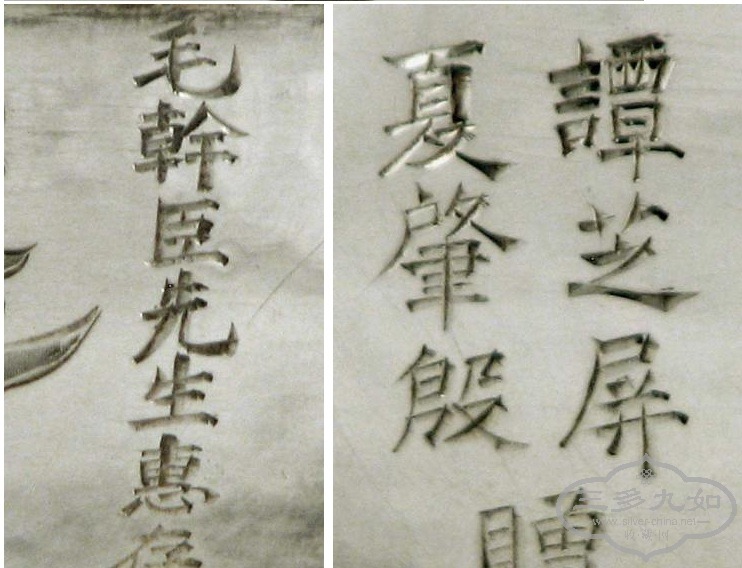 毛幹臣先生惠存
譚芝屏
夏肇殷
贈
三多九如
www.silver-china.net